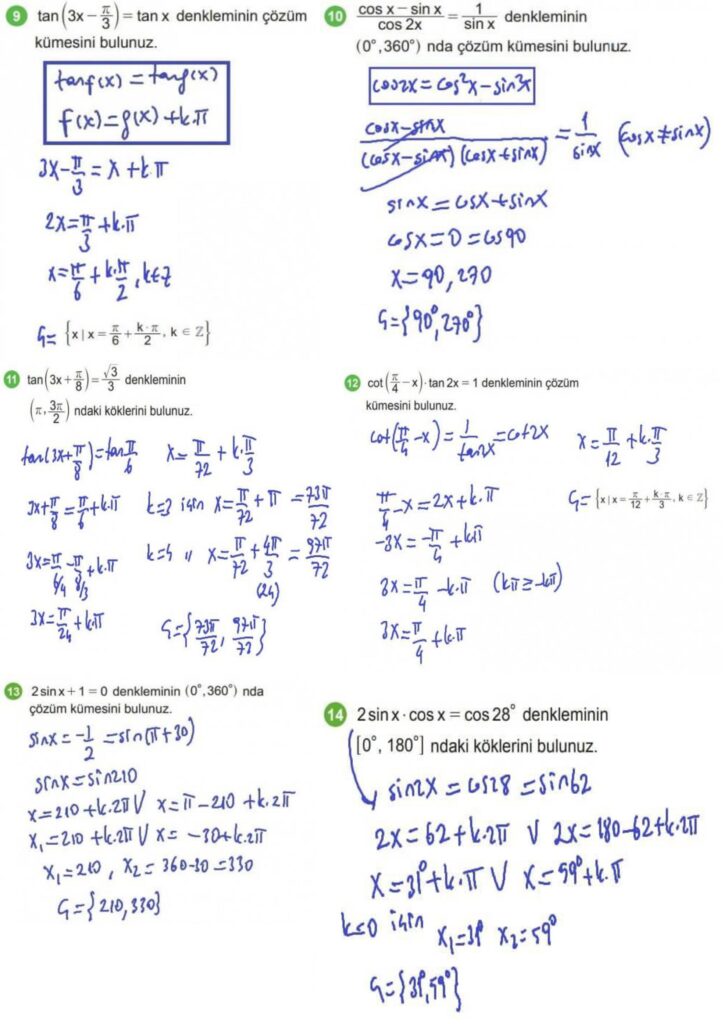 9 tan(3x − π/3) = tan x denkleminin çözüm
kümesini bulunuz.
tanf(x) = tang(x)
f(x) = g(x) + k.π
3x − π/3 = x + k.π
2x = π/3 + k.π
x = π/6 + k.π/2, k∈Z
Ç = {x | x = π/6 + k·π/2, k ∈ ℤ}
10 (cos x − sin x)/cos 2x = 1/sin x denkleminin
(0°, 360°) nda çözüm kümesini bulunuz.
cos2x = cos²x − sin²x
(cosx − sinx)/((cosx − sinx)(cosx + sinx)) = 1/sinx (cosx ≠ sinx)
sinx = cosx + sinx
cosx = 0 = cos90
x = 90, 270
Ç = {90°, 270°}
11 tan(3x + π/8) = √3/3 denkleminin
(π, 3π/2) ndaki köklerini bulunuz.
tan(3x + π/8) = tan π/6
3x + π/8 = π/6 + k.π
3x = π/6 − π/8 + k.π
(4) (3)
3x = π/24 + k.π
x = π/72 + k.π/3
k=3 için x = π/72 + π = 73π/72
k=4 " x = π/72 + 4π/3 = 97π/72
(24)
Ç = {73π/72, 97π/72}
12 cot(π/4 − x) · tan 2x = 1 denkleminin çözüm
kümesini bulunuz.
cot(π/4 − x) = 1/tan2x = cot2x
π/4 − x = 2x + k.π
−3x = −π/4 + kπ
3x = π/4 − k.π (kπ ≥ −kπ)
3x = π/4 + k.π
x = π/12 + k.π/3
Ç = {x | x = π/12 + k·π/3, k ∈ ℤ}
13 2 sin x + 1 = 0 denkleminin (0°, 360°) nda
çözüm kümesini bulunuz.
sinx = −1/2 = sin(π + 30)
sinx = sin210
x = 210 + k.2π V x = π − 210 + k.2π
x₁ = 210 + k.2π V x = −30 + k.2π
x₁ = 210, x₂ = 360 − 30 = 330
Ç = {210, 330}
14 2 sin x · cos x = cos 28° denkleminin
[0°, 180°] ndaki köklerini bulunuz.
sin2x = cos28 = sin62
2x = 62 + k.2π V 2x = 180 − 62 + k.2π
x = 31° + k.π V x = 59° + k.π
k=0 için x₁ = 31° x₂ = 59°
Ç = {31°, 59°}